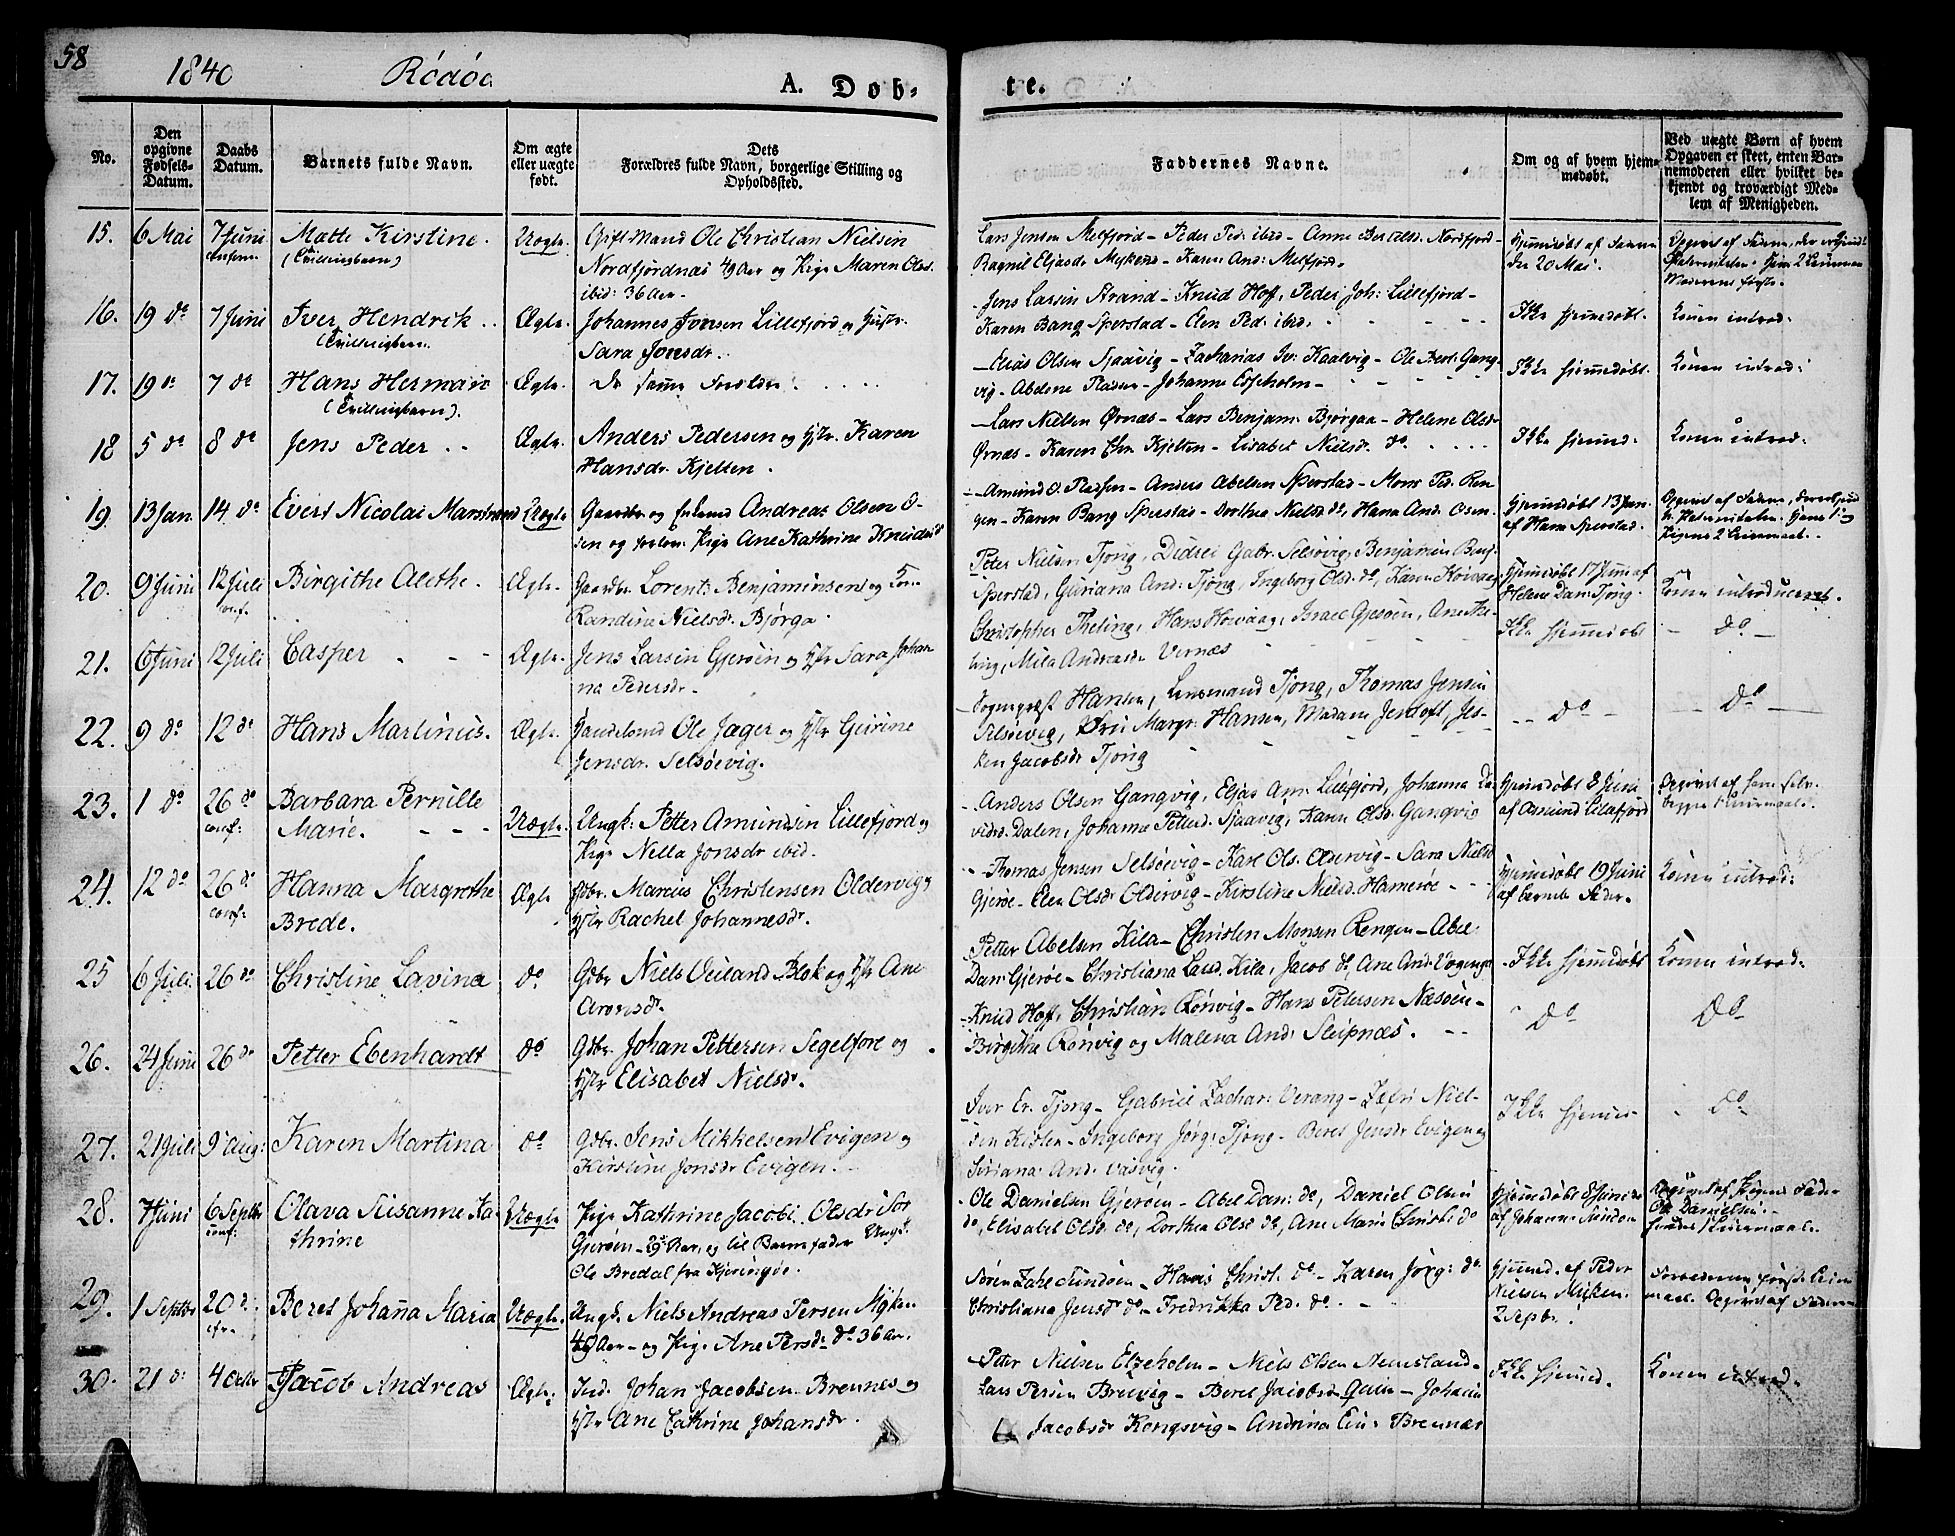 58
1840 Rödöe A. Døb- te.
No.
Den opgivne Fødsels-Datum.
Daabs Datum.
Barnets fulde Navn.
Om ægte eller uægte født.
Dets Forældres fulde Navn, borgerlige Stilling og Opholdssted.
Faddernes Navne.
Om og af hvem hjemmedøbt.
Ved uægte Børn af hvem Opgaven er skeet, enten Barnemoderen eller hvilket bekjendt og troværdigt Medlem af Menigheden.
15. 6 Mai 7 Juni Mætte Kirstine. Uægte. Gift Mand Ole Christian Nielsen
(Tvillingbarn)
Nordfjordnæs 49 Aar og Pige Maren Olsd.
ibid: 36 Aar.
Lars Jensen Melfjord - Peder Ped: ibid - Anne Bertelsd. Nordfjord -
Ragnil Eliasd. Myken - Karen And: Melfjord.
den 20 Mai.
16. 19 do 7 Juni Iver Hendrik Ægte. Johannes Jonsen Lillefjord og Hustr.
(Tvillingbarn.
Sara Jonsdr.
Jens Larsen Strand - Knud Hoff, Peder Joh: Lillefjord -
Karen Bang Sperstad - Elen Ped: ibid.
Ikke hjemmedøbt. Konen introd:
17. 19 do 7 do Hans Herman Ægte. De samme Forældre.
(Tvillingbarn).
Elias Olsen Sjaavig - Zacharias Iv: Kaalvig - Ole Bert: Gang-
vig - Abelone Pladsen - Johanne Esseholm -
Ikke hjemmedøbt. Konen introd:
18 5 do 8 do Jens Peder Ægte. Anders Pedersen og Hstr. Karen
Hansdr. Kjelsen.
Lars Nielsen Ørnæs - Lars Benjam: Bjørgaa - Helene Olsdr
Ørnæs - Karen Chr. Kjelsen - Lisabet Nielsd. do
Ikke hjemmd: Konen introd:
19 13 Jan. 14 do Evert Nicolai Marstrand Uægte. Gaardbr. og Enkemd Andreas Olsen O-
sen og forlov. Pige Ane Kathrine Knudsd
Amund O. Pladsen - Anders Abelsen Sperstad - Mons Ped. Ren-
gen - Karen Bang Sperstad - Dorthea Nielsd do, Hana And. Osen.
Hjemmedøbt 13 Jan.
af Hans Sperstad.
20. 9 Juni 12 Juli Birgithe Alethe. Ægte. Gaardbr. Lorents Benjaminsen og Kone
conf.
Randine Nielsdr. Bjørga.
Peter Nielsen Tjong, Didrei Gabr. Selsøvig, Benjamin Benj.
Sperstad, Guriana And: Tjong, Ingeborg Olsd. do, Karen Hoivaag
Hjemmedøbt 17 Juni af
Helene Dan: Tjong. Konen introduceret.
21. 6 Juni 12 Juli Casper Ægte. Jens Larsen Gjerøen og Hstr Sara Johan
na Pedersdr.
Christopher Theling, Hans Hoivaag, Israel Gjerøen, Ane The-
ling, Mila Andreasdr Vernæs
Ikke hjemmedøbt - do -
22. 9 do 12 do Hans Martinus. Ægte. Handelsmd Ole Jæger og Hstr Gurine
Jensdr. Selsøevig.
Sogneprest Hansen, Lensmand Tjong, Thomas Jensen
Selsøevig, Margr: Hansen, Madame Jentoft, Jes-
ken Jacobsdr Tjong
- do - - do -
23. 1 do 26 do Barbara Pernille
conf: Marie. Uægte. Ungk: Petter Amundsen Lillefjord og
Pige Nella Jonsdr ibid.
Anders Olsen Gangvig, Elias Am: Lillefjord, Johanna Da-
vidsd. Dalen, Johanna Pettersd. Sjaavig, Karen Olsd. Gangvig
Hjemmedøbt 8 Juni
af Amund Lillefjord
24. 12 do 26 do Hanna Margrethe
conf Brede. Ægte Gdbr. Marcus Christensen Oldervig og
Hstr Rachel Johannesdr.
Thomas Jensen Selsøevig - Karl Ols. Oldervig - Sara Nielsd
Gjerøe - Elen Olsdr Oldervig - Kirstine Nielsd. Hamerøe -
Hjemmedøbt 19 Juni
af Barnets Fader. Konen introd:
25 6 Juli. 26 do Christine Lavina do Gdbr Niels Veiland Blok og Hstr Ane
Aronsdr.
Petter Abelsen Kila - Christen Monsen Rengen - Abel
Dan: Gjerøe - Christiana Laud. Kila, Jacob do, Ane And: Vogenge
Ikke hjemmedøbt Konen introd.
26. 24 Juni 26 do Petter Ebenhardt do Gdbr. Johan Pettersen Segelfore og
Hstr Elisabet Nielsdr.
Knud Hoff, Christian Rønvig - Hans Petersen Næsøen -
Birgithe Rønvig og Malena And: Sleipnæs.
do do
27. 21 Juli 9 Aug: Karen Martina do Gdbr. Jens Mikkelsen Evigen og
Kirstine Jonsdr Evigen.
Iver Er. Tjong - Gabriel Zachar: Verang - Zefri Niel-
sen Kislen - Ingeborg Jørg: Tjong - Beret Jensdr Evigen og
Siriana And. Vasvig.
Ikke hjemmd do
28. 7 Juni 6 Septbr Olava Susanne Ka-
conf: thrine Uægte Pige Kathrine Jacobi. Olsdr Sor
Gjerøen - 29 Aar, og til Barnefader Ungk.
Ole Bredal fra Kjeringøe.
Ole Danielsen Gjerøen - Abel Dan: do, Daniel Olsen
do, Elisabet Olsd. do, Dorthea Olsd do, Ane Marie Christ: do
Ole Danielsen.
29. 1 Septbr 20 do Beret Johana Maria Uægte. Ungk. Niels Andreas Persen Myken
49 Aar - og Pige Ane Persd. do 36 Aar.
Søren Zahl Sundøen - Hans Christ. do - Karen Jørg: do
Christiana Jensdr do - Fredrikka Ped. do -
Hjemmd. af Peder
Nielsen Myken.
2 Septbr.
30. 21 do 4 Octbr Jacob Andreas Ægte. Ind. Johan Jacobsen Brennes og
Hstr Ane Cathrine Johansdr.
Peter Nielsen Elzeholm - Niels Olsen Nemsland -
Lars Persen Brevig - Beret Jacobsd Quin - Johan
Jacobsdr Kongsvig - Andrina Brennæs
Ikke hjemmd. Konen introd.